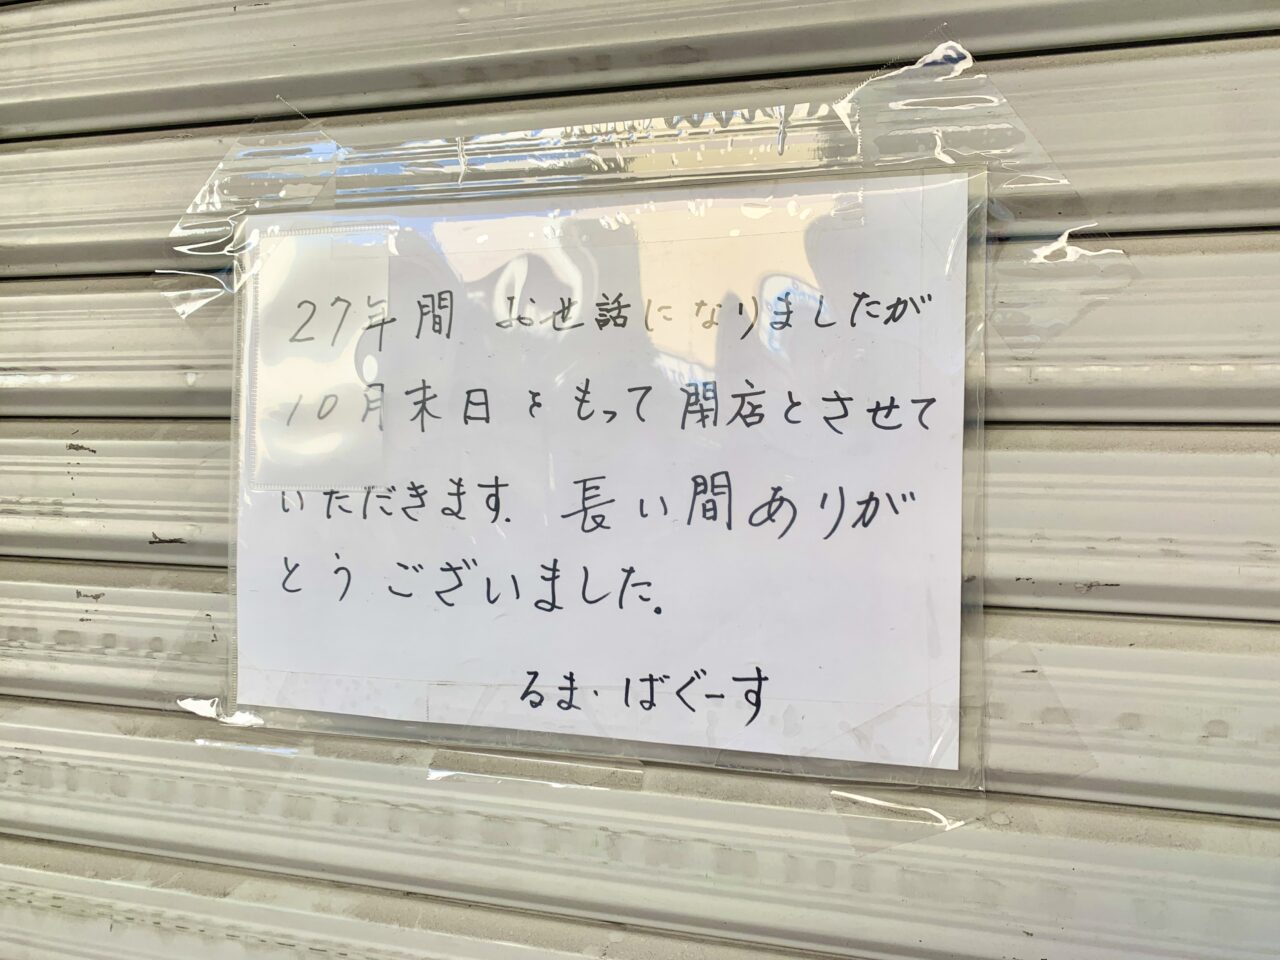 27年間 お世話になりましたが
10月末日をもって閉店とさせて
いただきます. 長い間ありが
とうございました.
るま・ばぐーす